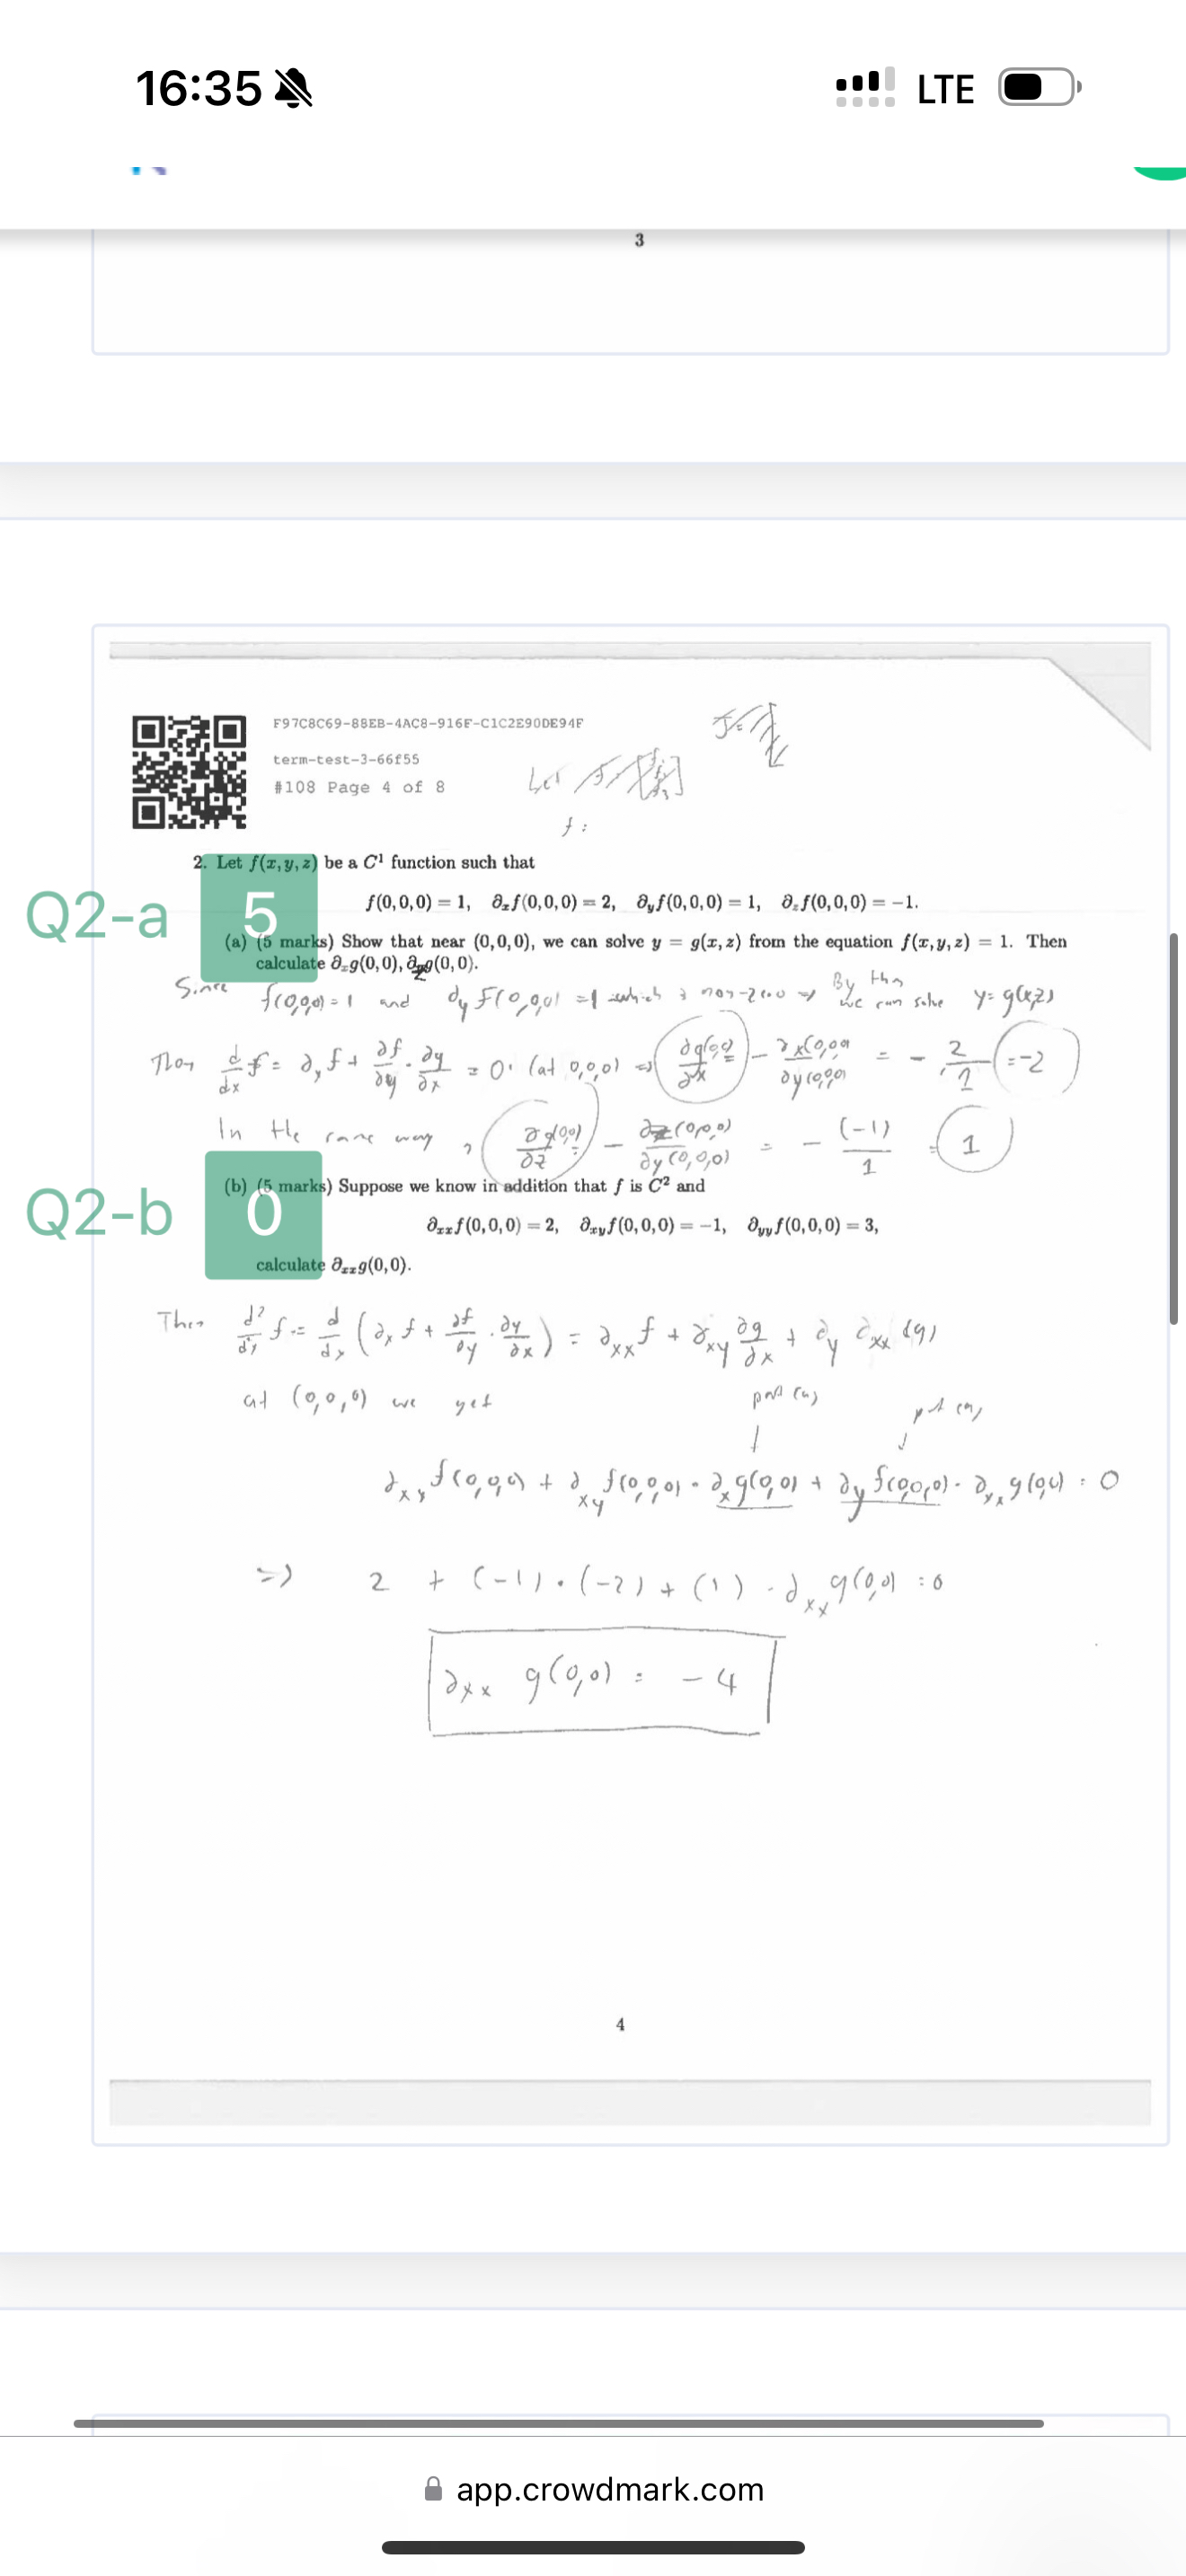 16:35 LTE
3
F97C8C69-88EB-4AC8-916F-C1C2E90DE94F
term-test-3-66f55
#108 Page 4 of 8
Let
f :
2. Let f(x, y, z) be a C¹ function such that
Q2-a 5
f(0,0,0) = 1, ∂ₓf(0,0,0) = 2, ∂ᵧf(0,0,0) = 1, ∂_z f(0,0,0) = −1.
(a) (5 marks) Show that near (0,0,0), we can solve y = g(x, z) from the equation f(x, y, z) = 1. Then
calculate ∂ₓg(0,0), ∂_z g(0,0).
Since f(0,0,0) = 1 and ∂y F(0,0,0) = 1 which is non-zero ⇒ By thm we can solve y = g(x,z)
Then d/dx f = ∂ₓf + ∂f/∂y · ∂y/∂x = 0 (at 0,0,0) ⇒ ∂g(0,0)/∂x = − ∂x(0,0,0)/∂y(0,0,0) = − 2/1 = −2
In the same way, ∂g(0,0)/∂z = − ∂z(0,0,0)/∂y(0,0,0) = − (−1)/1 = 1
Q2-b 0
(b) (5 marks) Suppose we know in addition that f is C² and
∂ₓₓf(0,0,0) = 2, ∂ₓᵧf(0,0,0) = −1, ∂ᵧᵧf(0,0,0) = 3,
calculate ∂ₓₓg(0,0).
Then d²/d²x f = d/dx (∂ₓf + ∂f/∂y · ∂y/∂x) = ∂ₓₓ f + ∂ₓᵧ ∂g/∂x + ∂y ∂ₓₓ (g)
at (0,0,0) we get part (a) pt (a)
∂ₓₓ f(0,0,0) + ∂ₓᵧ f(0,0,0) · ∂ₓ g(0,0) + ∂y f(0,0,0) · ∂ₓₓ g(0,0) = 0
⇒ 2 + (−1) · (−2) + (1) · ∂ₓₓ g(0,0) = 0
∂ₓₓ g(0,0) = −4
4
app.crowdmark.com